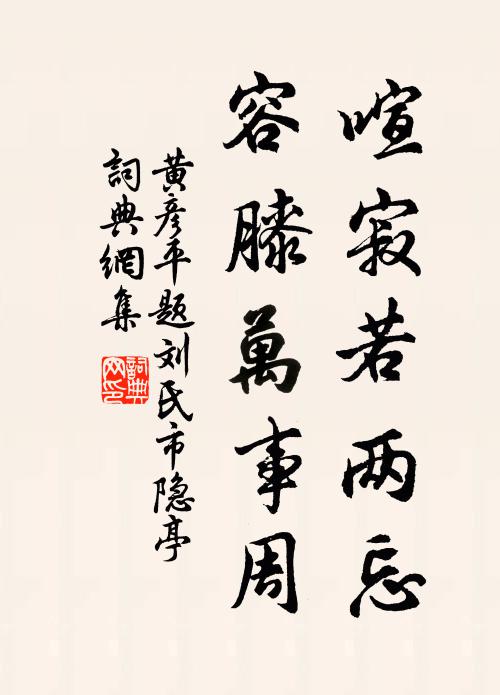 喧寂若两忘
容膝萬事周
黄彦平题刘氏市隐亭
詞典網集
詞典网印